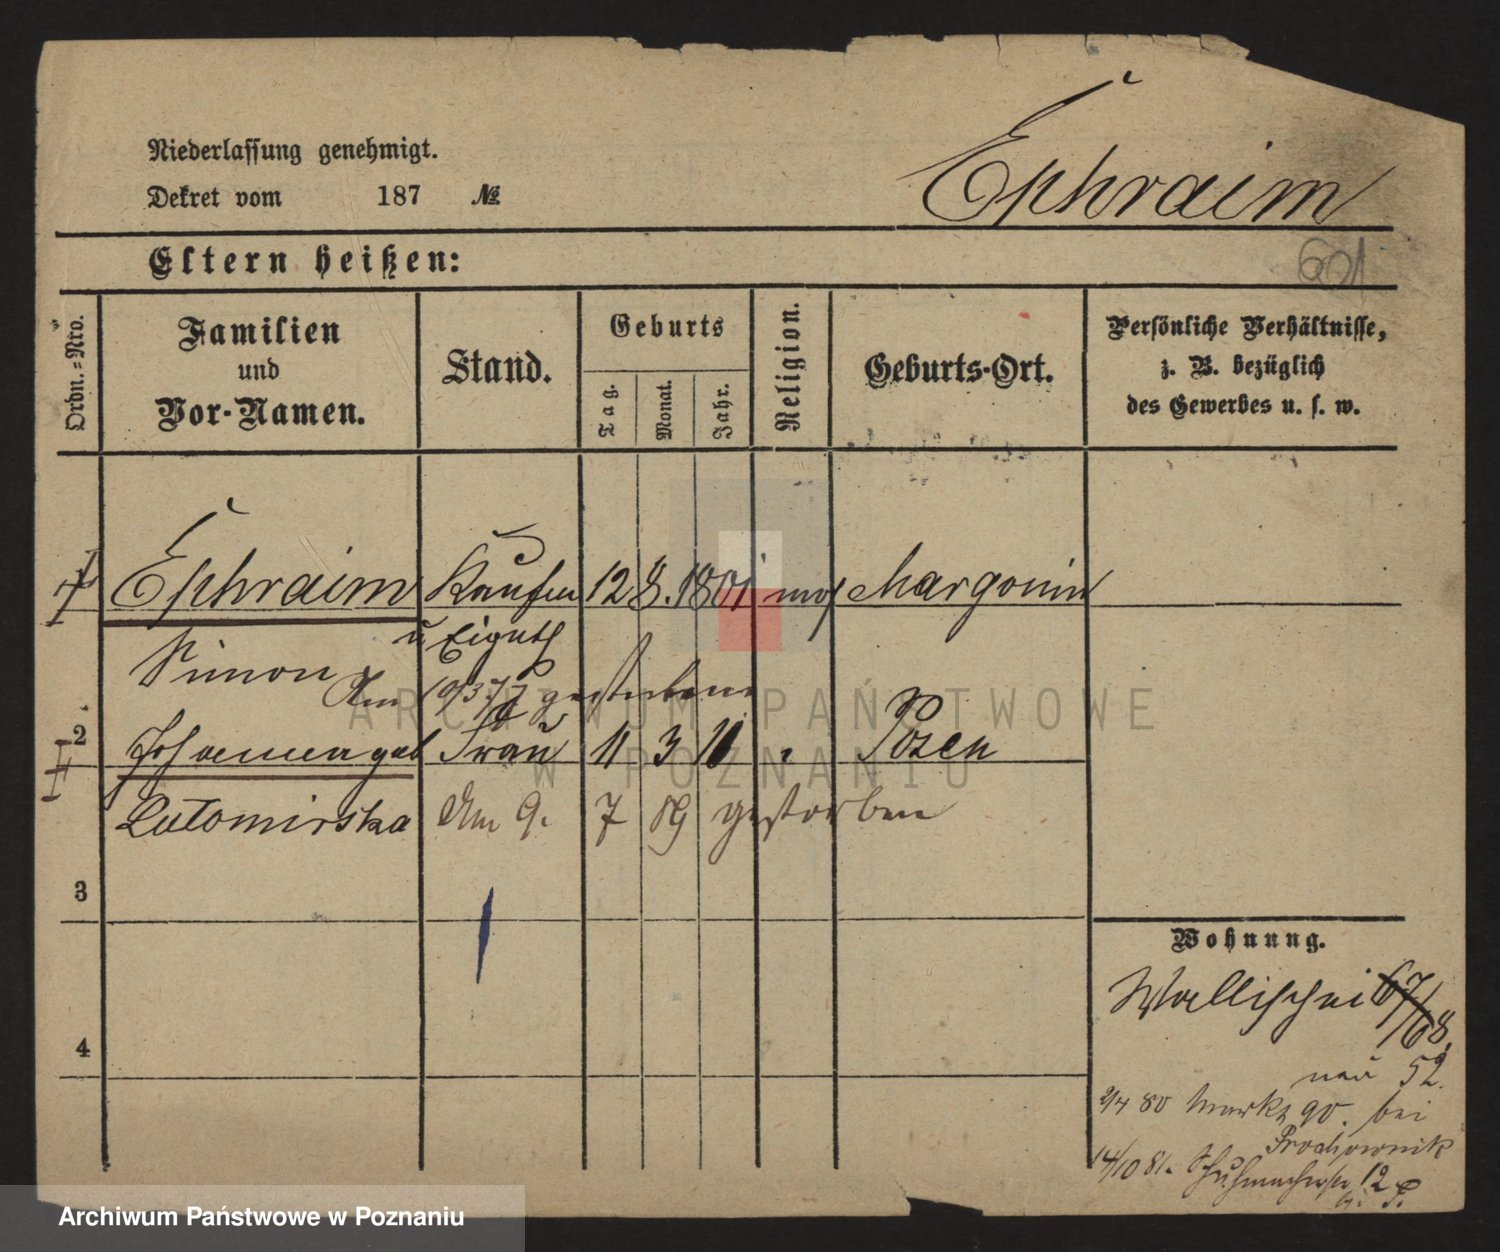 Niederlassung genehmigt.
Dekret vom 187 №
Ephraim
Eltern heißen:
601
Ordn.=Nro.
Familien
und
Vor-Namen.
Stand.
Geburts
Tag.
Monat.
Jahr.
Religion.
Geburts-Ort.
Persönliche Verhältnisse,
z. B. bezüglich
des Gewerbes u. s. w.
1 Ephraim Kaufm 12 8. 1801 mos Margonin
u Eigenth
Simon
Am 10/3 77 gestorben
2 Johanna geb Frau 11 3 11 " Posen
Lutomirska Am 9. 7 89 gestorben
3
4
Wohnung.
Wallischei 67/68.
neu 52.
2/4 80 Markt 90. bei
Prochownik
14/10 81. Schuhmacherstr 12
ARCHIWUM PAŃSTWOWE
W POZNANIU
Archiwum Państwowe w Poznaniu